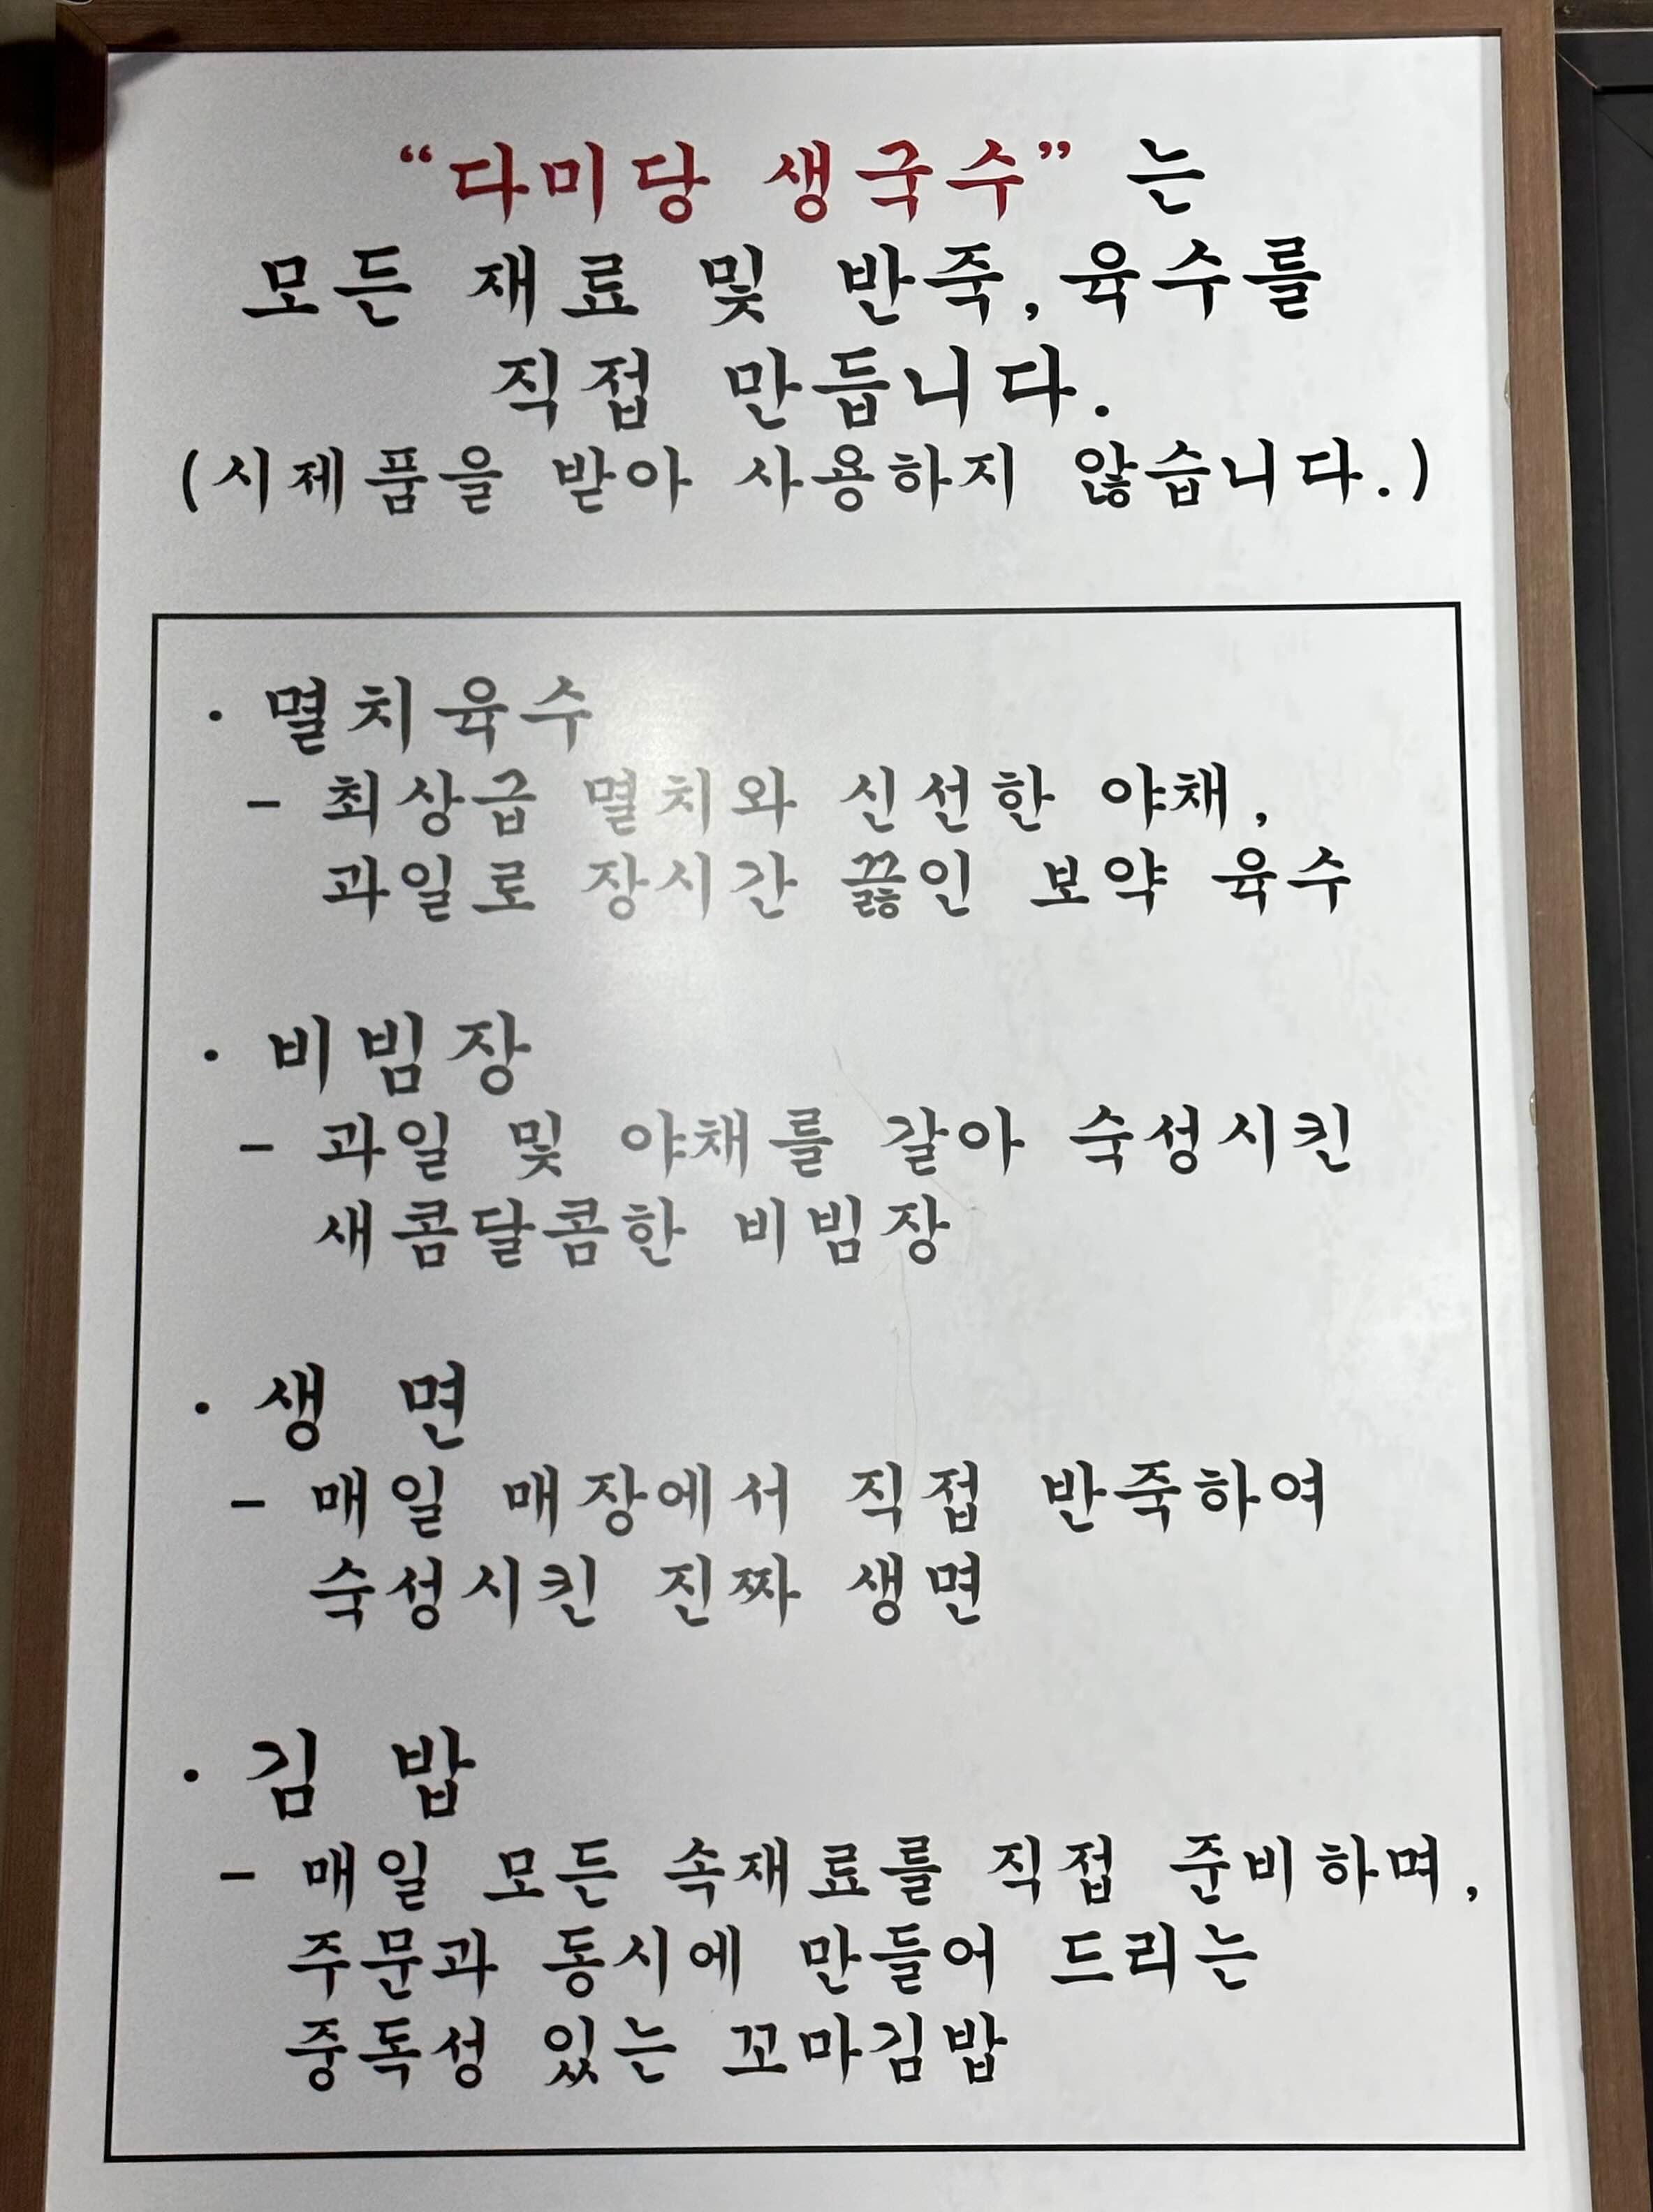 “다미당 생국수” 는
모든 재료 및 반죽, 육수를
직접 만듭니다.
(시제품을 받아 사용하지 않습니다.)
· 멸치육수
- 최상급 멸치와 신선한 야채,
과일로 장시간 끓인 보약 육수
· 비빔장
- 과일 및 야채를 갈아 숙성시킨
새콤달콤한 비빔장
· 생 면
- 매일 매장에서 직접 반죽하여
숙성시킨 진짜 생면
· 김 밥
- 매일 모든 속재료를 직접 준비하며,
주문과 동시에 만들어 드리는
중독성 있는 꼬마김밥